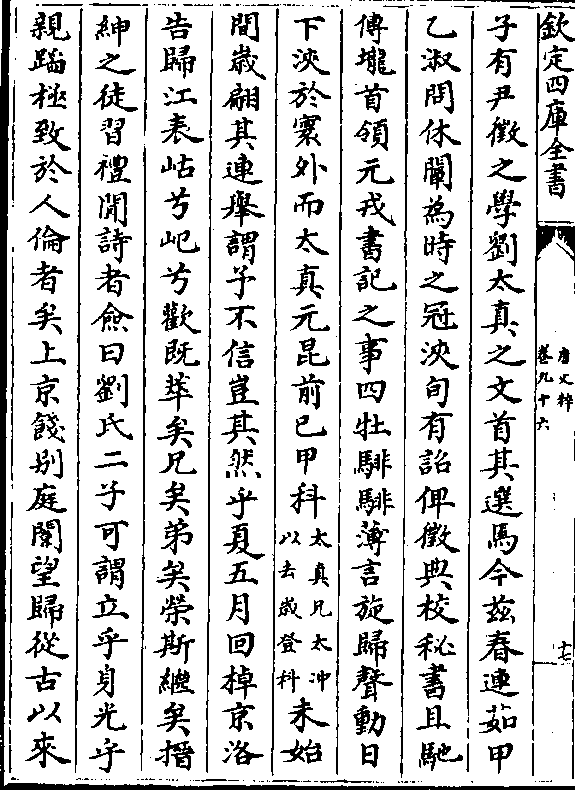 欽定四庫全書
唐文粹
卷九十六
十七
子有尹徵之學劉太真之文首其選焉今兹春連茹甲
乙淑問休闡為時之冠浹旬有詔俾徵典校秘書且馳
傳壠首領元戎書記之事四牡騑騑薄言旋歸聲動日
下浹於寰外而太真元昆前已甲科
太真兄太冲
以去歳登科
未始
間歳翩其連舉謂予不信豈其然乎夏五月回棹京洛
告歸江表岵兮屺兮歡既萃矣兄矣弟矣榮斯繼矣搢
紳之徒習禮聞詩者僉曰劉氏二子可謂立乎身光乎
親蹈極致於人倫者矣上京餞别庭闈望歸從古以來